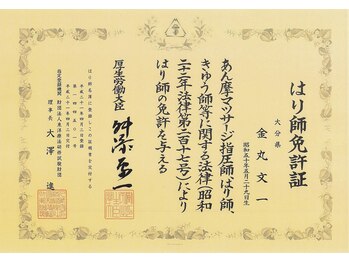 はり師免許証
大分県
金丸文一
昭和五十年五月二十九日生
あん摩マッサージ指圧師、はり師、
きゅう師等に関する法律（昭和
二十二年法律第二百十七号）により
はり師の免許を与える
厚生労働大臣
舛添要一
はり師名簿に登録しこの証明書を交付する
指定登録機関 財団法人東洋療法研修試験財団
理事長 大澤進